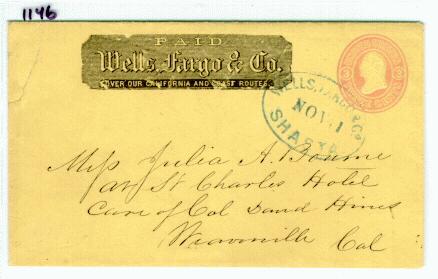 1146
PAID
Wells, Fargo & Co.
OVER OUR CALIFORNIA AND COAST ROUTES.
WELLS, FARGO & Co
NOV. 1
SHASTA
3 3
Miss Julia A. Bourne
at St Charles Hotel
Care of Col David Hines
Cal